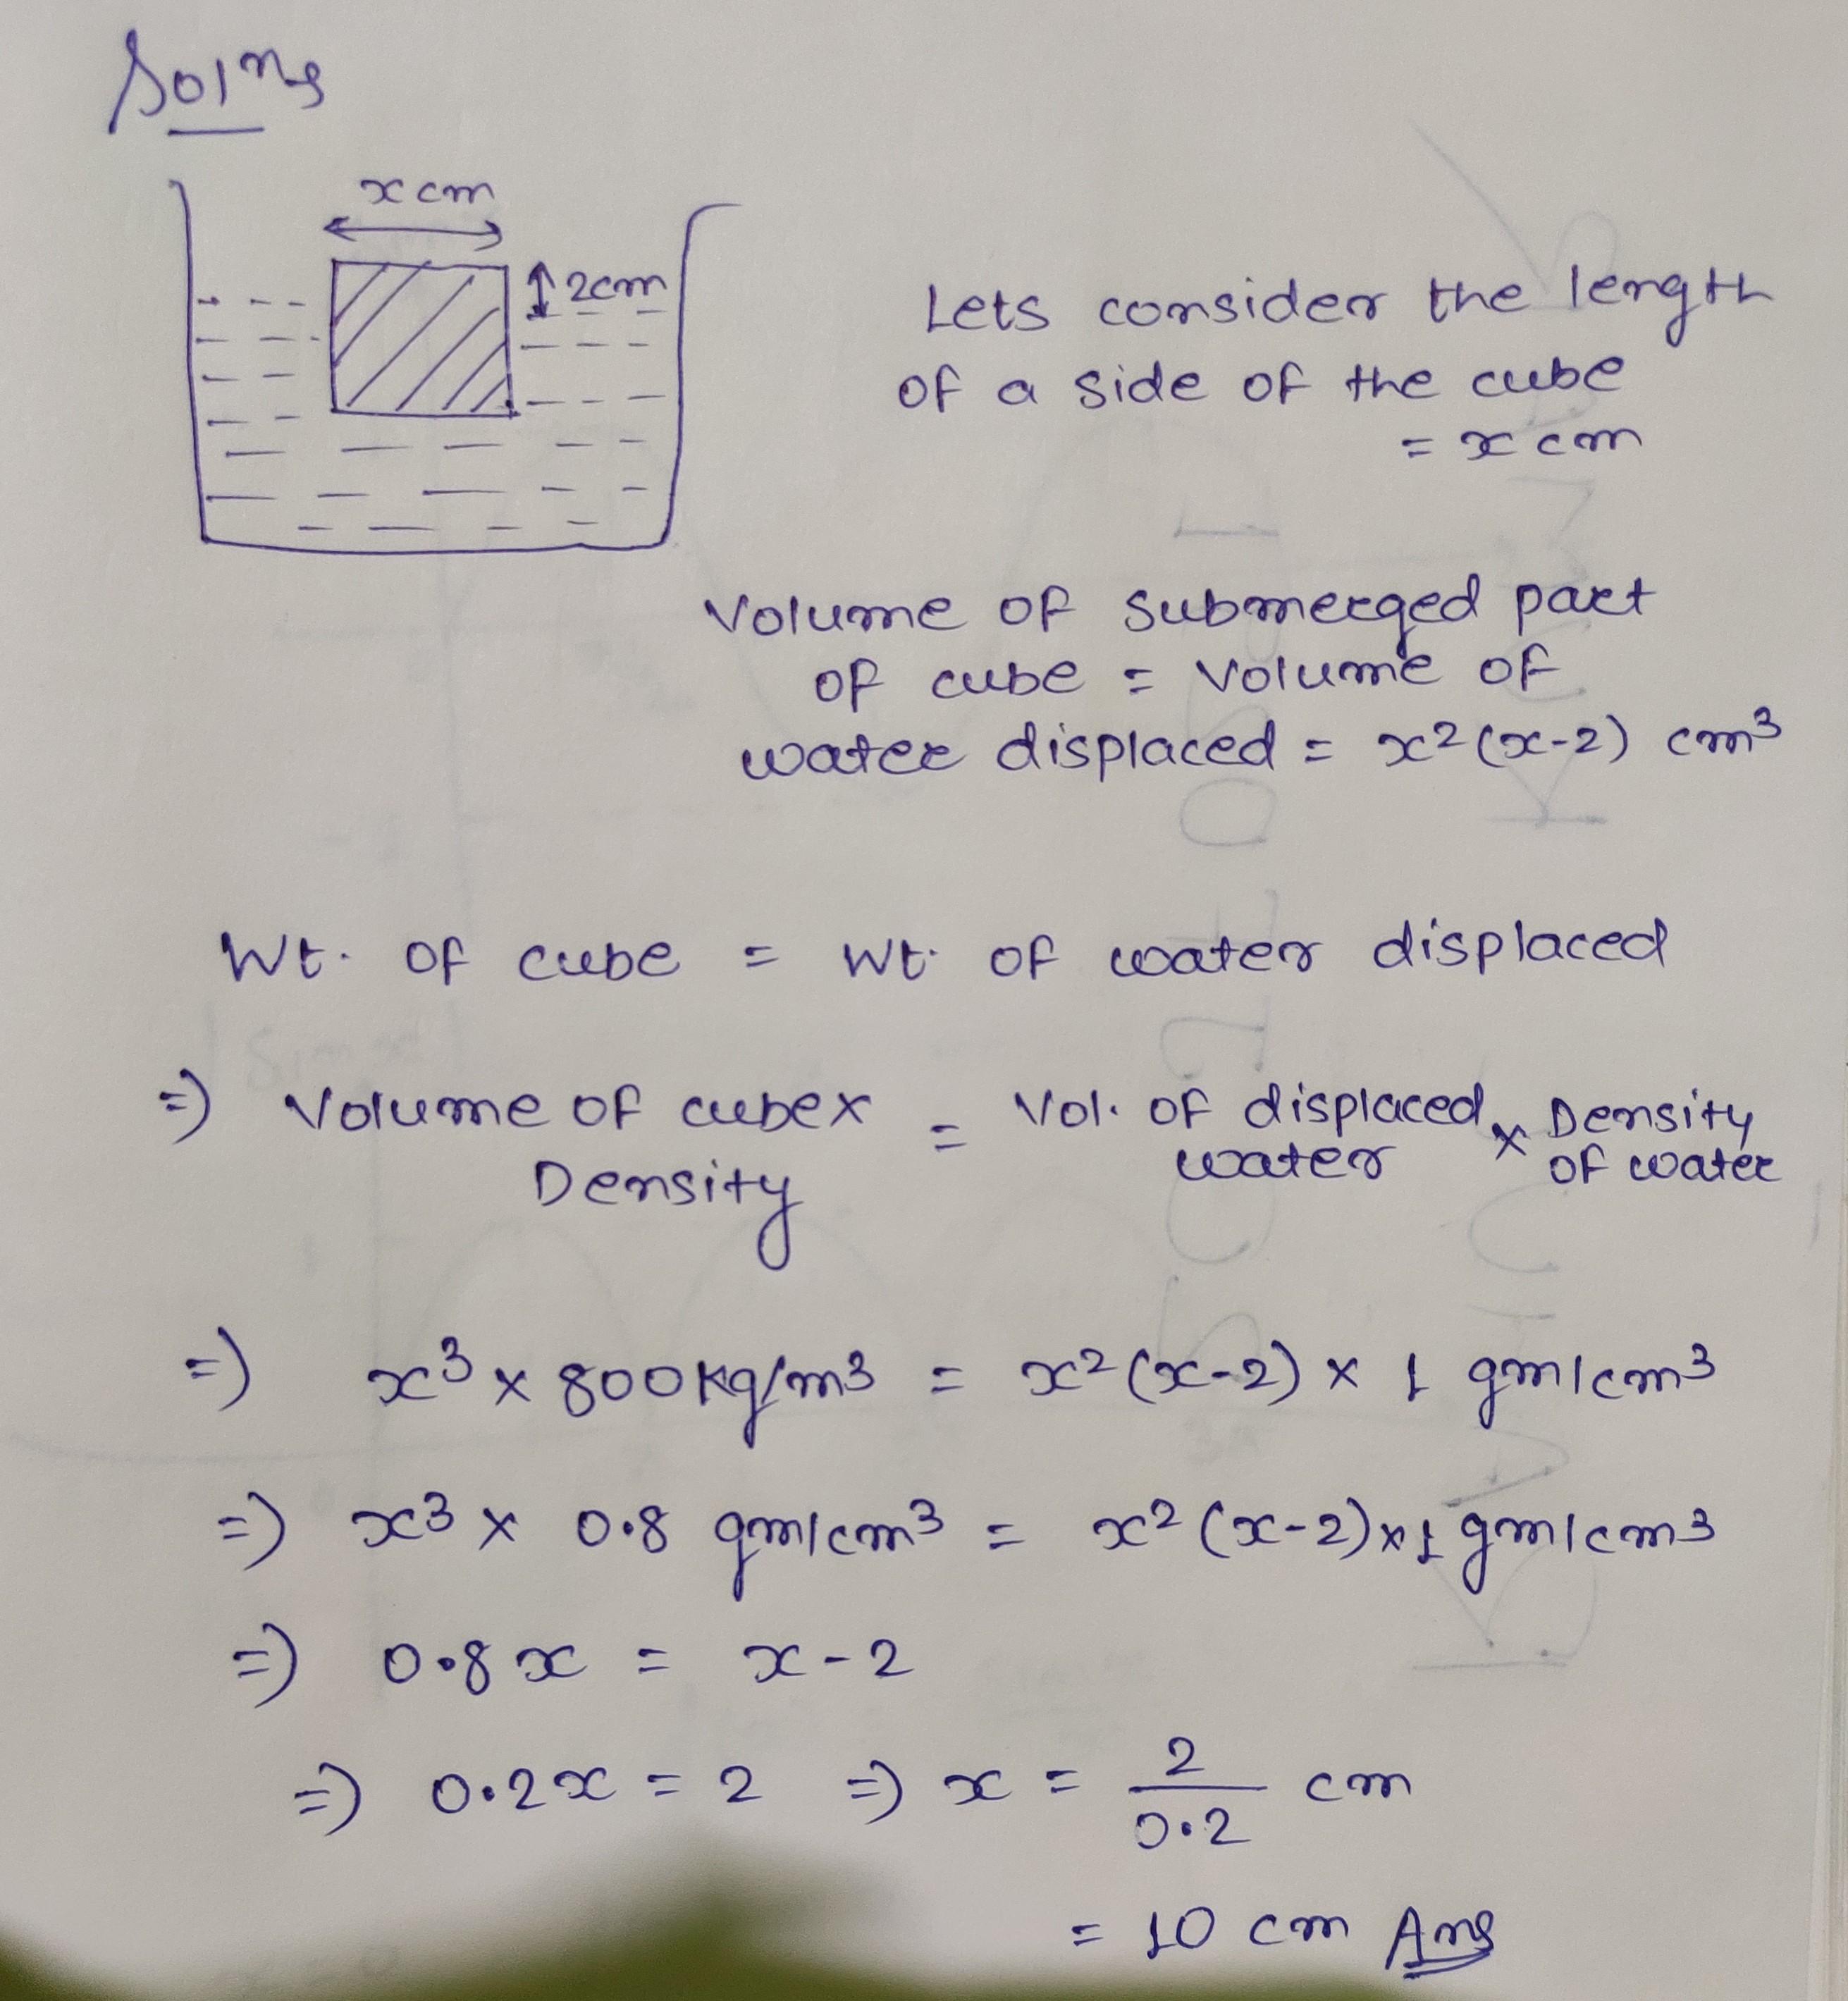 Solns
x cm
2cm
Lets consider the length
of a side of the cube
= x cm
Volume of submerged part
of cube = Volume of
water displaced = x²(x-2) cm³
Wt. of cube = Wt. of water displaced
=) Volume of cube x Density = Vol. of displaced water x Density of water
=) x³ x 800 kg/m³ = x²(x-2) x 1 gm/cm³
=) x³ x 0.8 gm/cm³ = x²(x-2) x 1 gm/cm³
=) 0.8x = x-2
=) 0.2x = 2 =) x = 2/0.2 cm
= 10 cm Ans